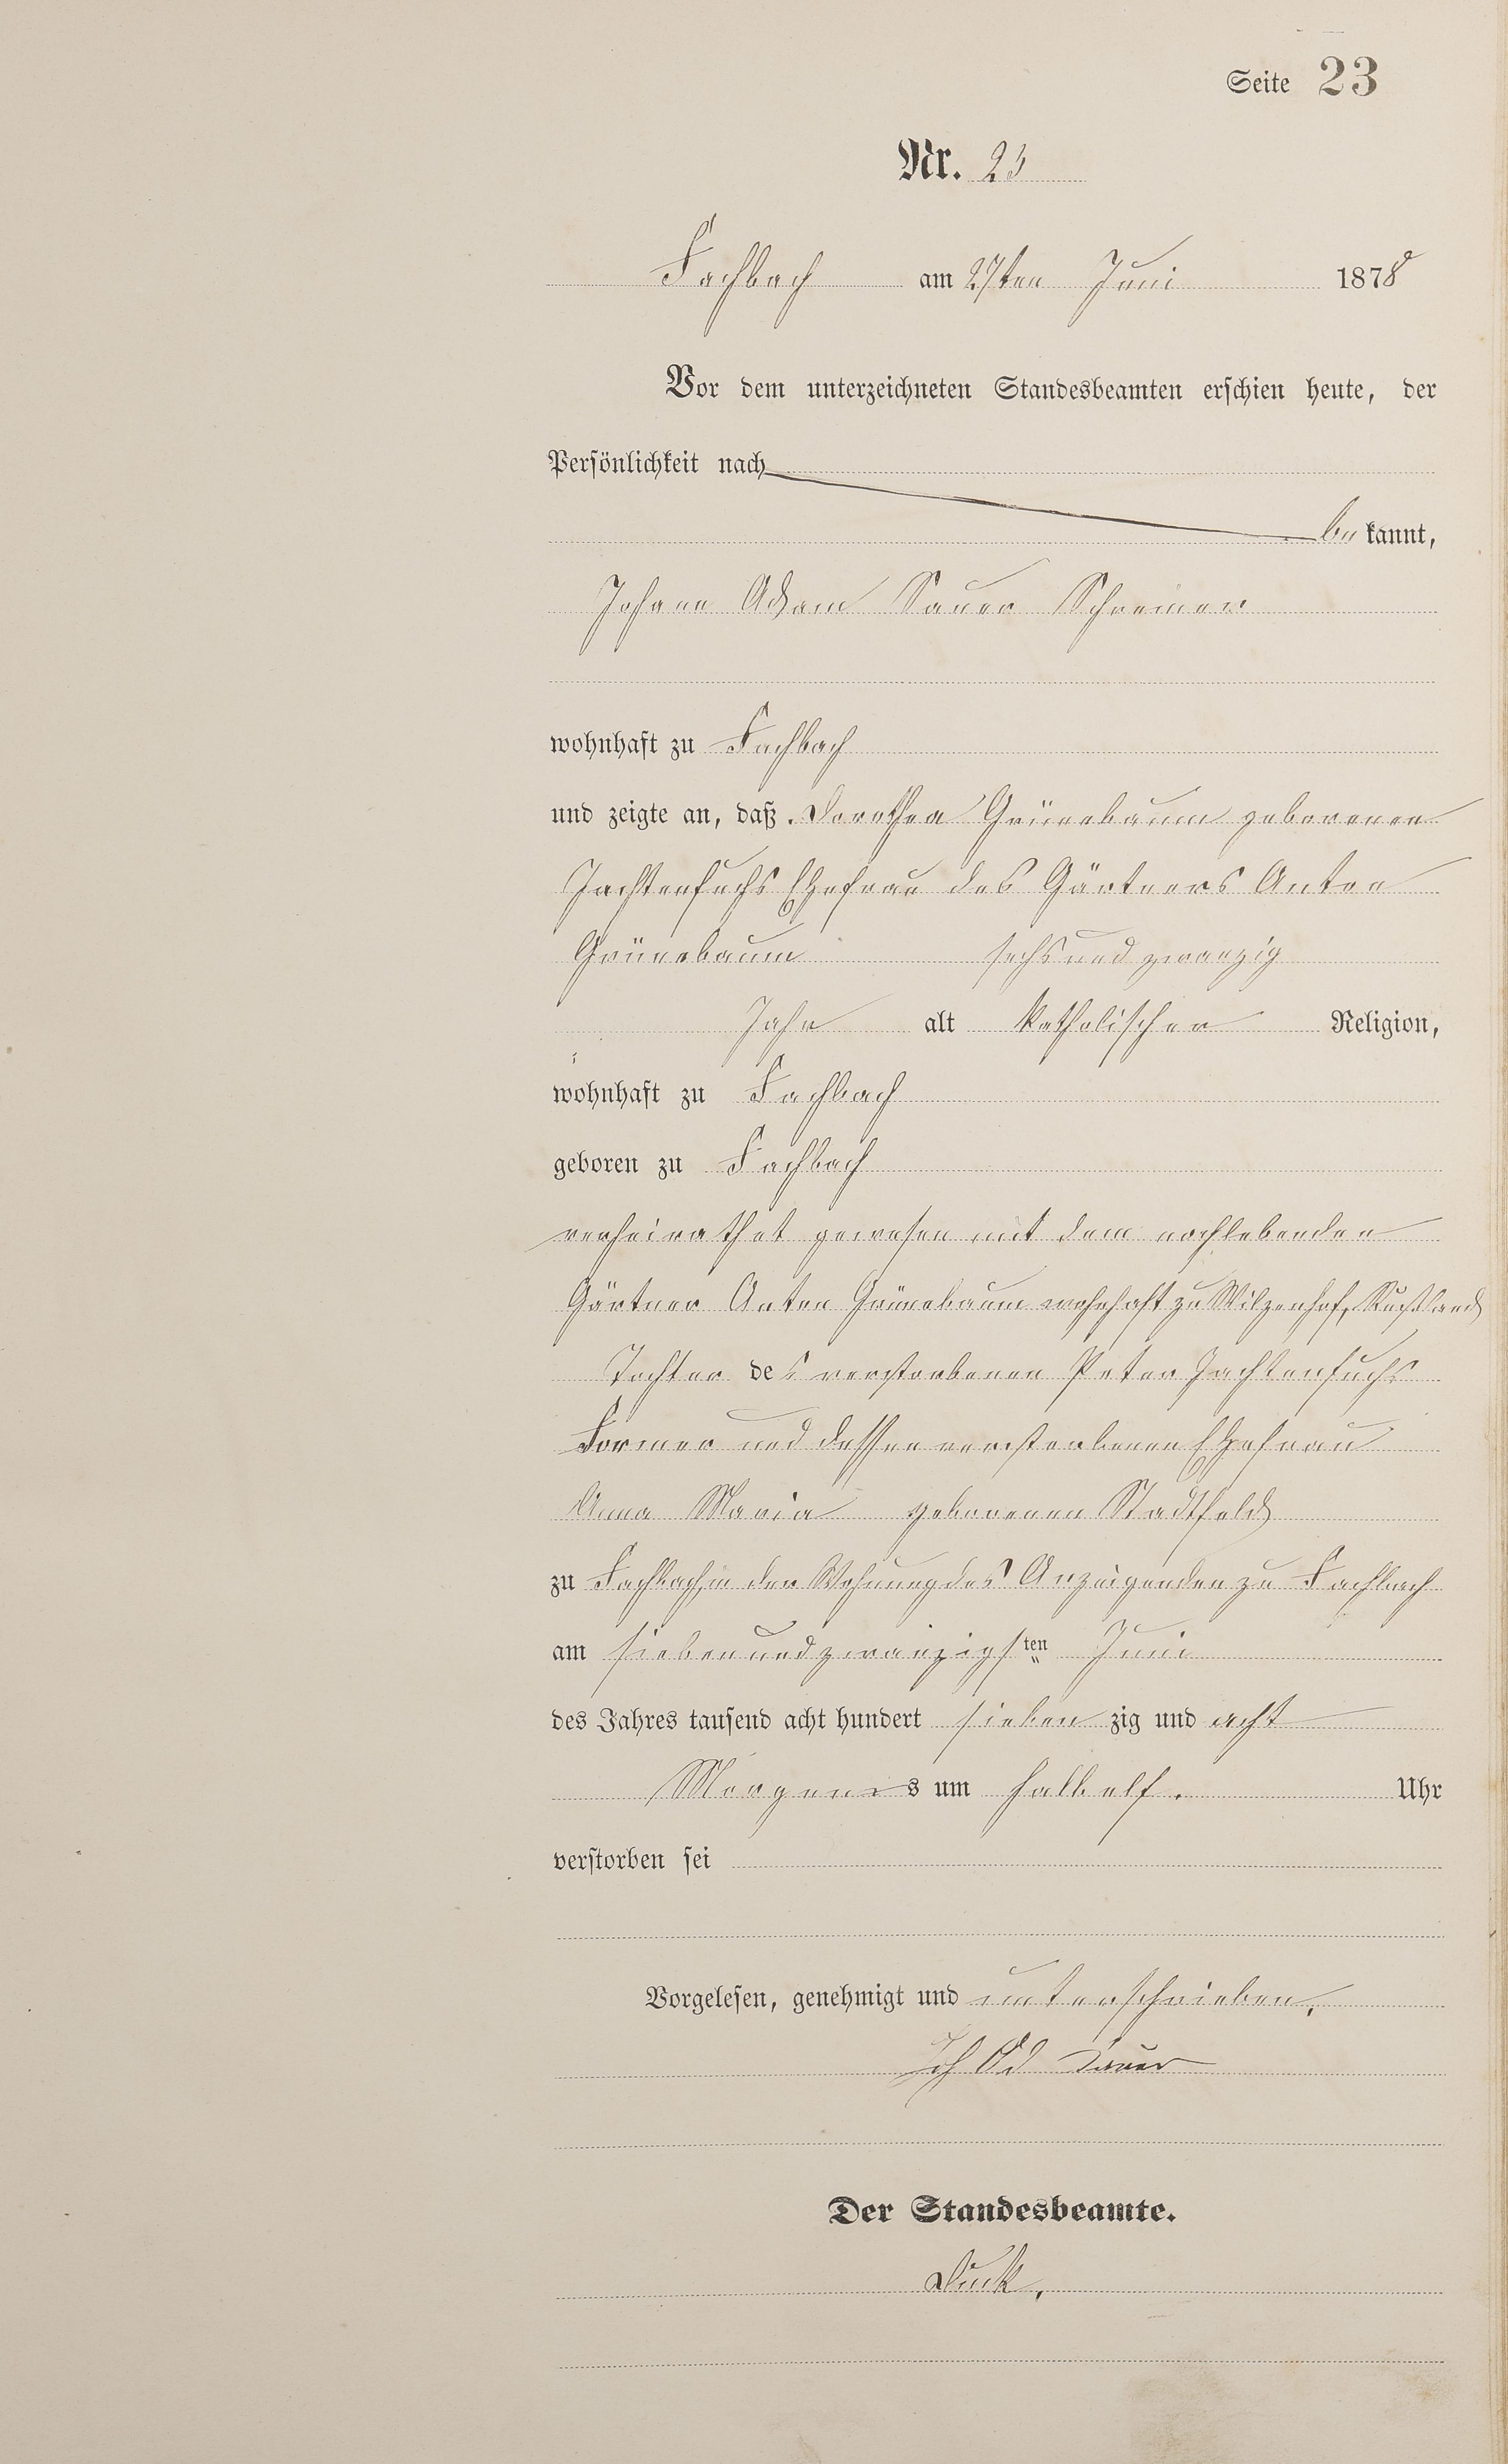 Seite 23
Nr. 23
Fachbach am 27ten Juni 1878
Vor dem unterzeichneten Standesbeamten erschien heute, der
Persönlichkeit nach
be kannt,
Johann Adam Sauer Schreiner
wohnhaft zu Fachbach
und zeigte an, daß Dorothea Grünebaum geborenen
Jachtenfuchs Ehefrau des Gärtners Anton
Grünebaum sechsundzwanzig
Jahr alt katholischer Religion,
wohnhaft zu Fachbach
geboren zu Fachbach
verheirathet gewesen mit dem nochlebenden
Gärtner Anton Grünebaum wohnhaft zu Wilzenhof, Rußland
Tochter des verstorbenen Peter Jachtenfuchs
Former und dessen verstorbenen Ehefrau
Anna Maria geborenen Stadtfeld
zu Fachbach, in der Wohnung des Anzeigenden zu Fachbach
am siebenundzwanzigsten Juni
des Jahres tausend acht hundert sieben zig und acht
Morgens um halb elf. Uhr
verstorben sei
Vorgelesen, genehmigt und unterschrieben.
Joh Ad Sauer
Der Standesbeamte.